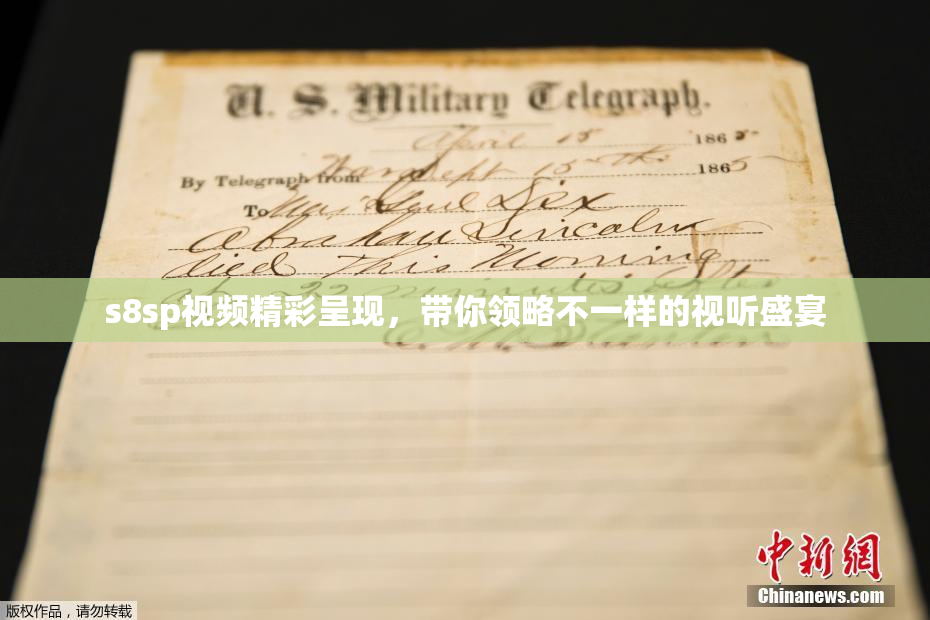 U. S. Military Telegraph.
April 15 1865
By Telegraph from War Dept 15th 1865
To Maj Genl Dix
Abraham Lincoln
died This Morning
at 22 minutes after
s8sp视频精彩呈现，带你领略不一样的视听盛宴
E. M. Stanton
中新网
Chinanews.com
版权作品，请勿转载